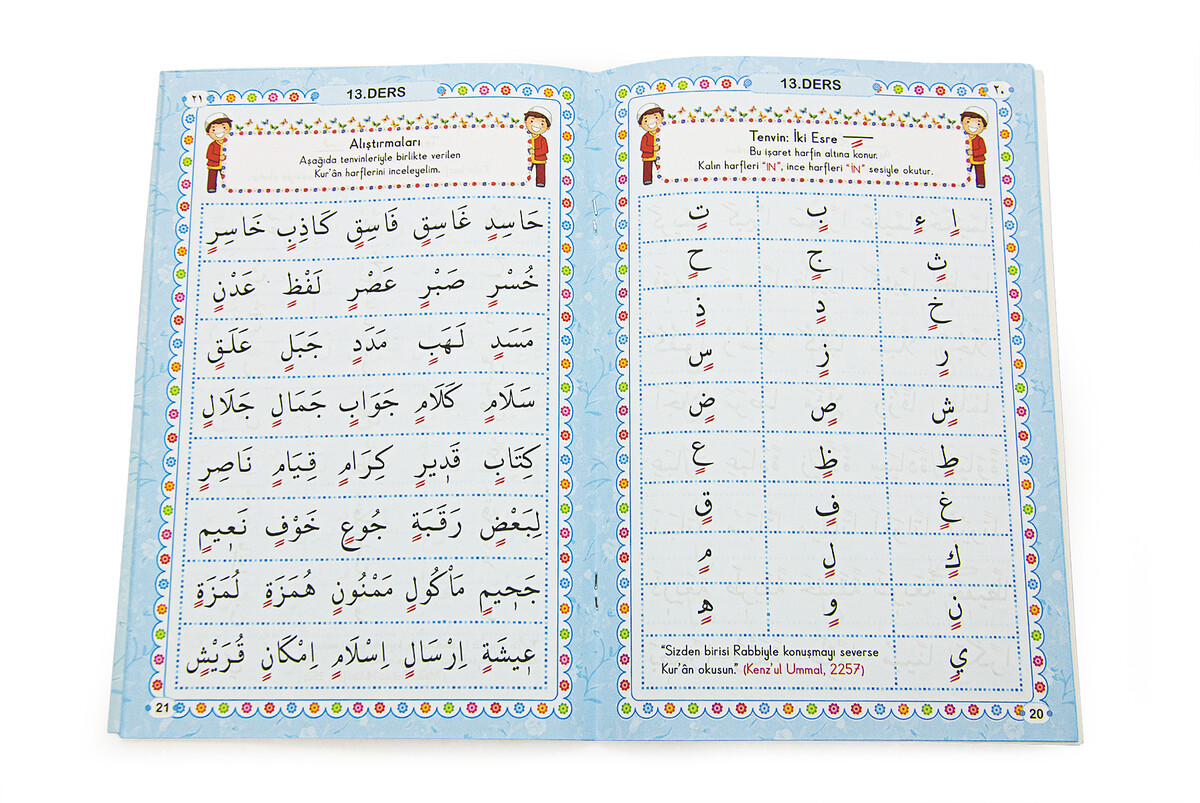 13.DERS
٢٠
Tenvin: İki Esre
Bu işaret harfin altına konur.
Kalın harfleri “IN”, ince harfleri “İN” sesiyle okutur.
اٍ ءٍ بٍ تٍ
ثٍ جٍ حٍ
خٍ دٍ ذٍ
رٍ زٍ سٍ
شٍ صٍ ضٍ
طٍ ظٍ عٍ
غٍ فٍ قٍ
كٍ لٍ مٍ
نٍ وٍ هٍ
يٍ
“Sizden birisi Rabbiyle konuşmayı severse
Kur’ân okusun.” (Kenz’ul Ummal, 2257)
20
٢١
13.DERS
Alıştırmaları
Aşağıda tenvinleriyle birlikte verilen
Kur’ân harflerini inceleyelim.
حَاسِدٍ غَاسِقٍ فَاسِقٍ كَاذِبٍ خَاسِرٍ
خُسْرٍ صَبْرٍ عَصْرٍ لَفْظٍ عَدْنٍ
مَسَدٍ لَهَبٍ مَدَدٍ جَبَلٍ عَلَقٍ
سَلَامٍ كَلَامٍ جَوَابٍ جَمَالٍ جَلَالٍ
كِتَابٍ قَدِيرٍ كِرَامٍ قِيَامٍ نَاصِرٍ
لِبَعْضٍ رَقَبَةٍ جُوعٍ خَوْفٍ نَعِيمٍ
جَحِيمٍ مَاْكُولٍ مَمْنُونٍ هُمَزَةٍ لُمَزَةٍ
عِيشَةٍ اِرْسَالٍ اِسْلَامٍ اِمْكَانٍ قُرَيْشٍ
21